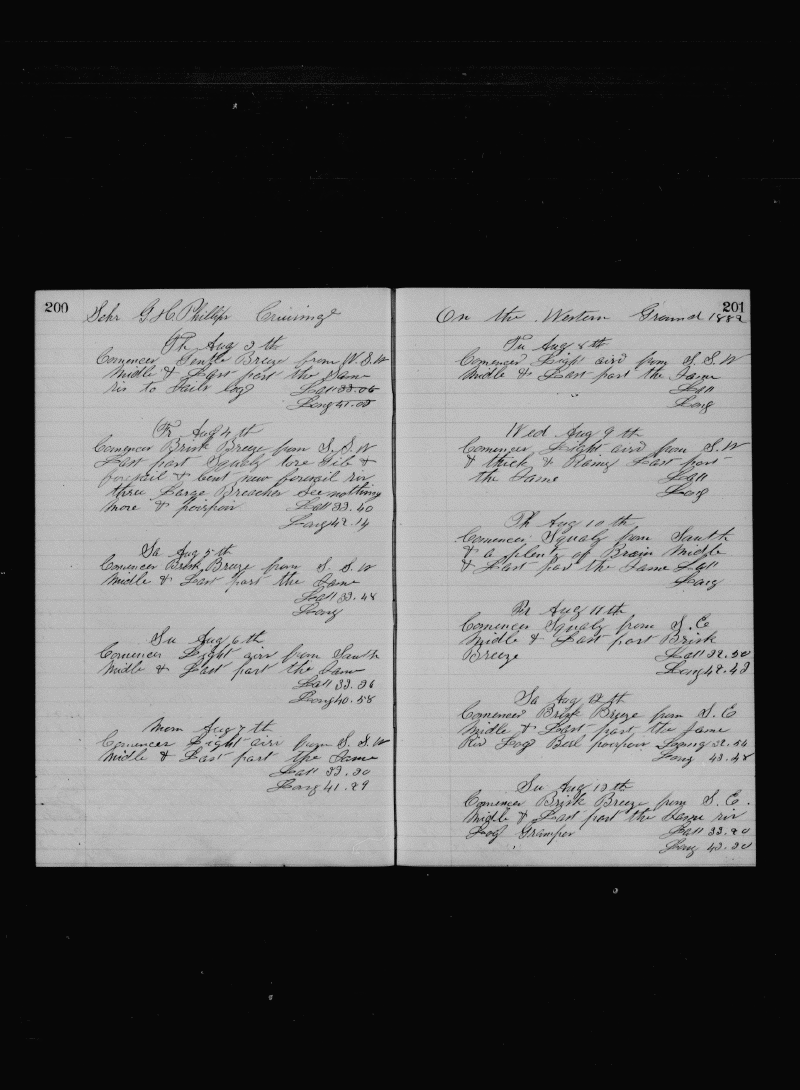 200
Schr G H Phillips Cruising
Th Aug 3 th
Comences Gentle Breze from W.S.W
Midle & Last part the Same
to Sails log Latt 33.06
Long 41.03
Fr Aug 4 th
Comences Brisk Breze from S.S.W
Last part Squaly tore Gib &
foresail & bent new foresail
three Large See nothing
More & porpoir Latt 33.40
Long 42.14
Sa Aug 5 th
Comences Brisk Breze from S. S. W
Midle & Last part the Same
Latt 33.48
Long
Su Aug 6 th
Comences Light airs from South
Midle & Last part the Same
Latt 33.36
Long 40.58
Mom Aug 7 th
Comences Light airs from S. S. W
Midle & Last part the Same
Latt 33.30
Long 41.29
201
On the Western Ground 1882
Tu Aug 8 th
Comences Light aird from S.S.W
Midle & Last part the Same
Latt
Long
Wed Aug 9 th
Comences Light aird from S.W
& thick & Rainy Last part
the Same Latt
Long
Th Aug 10 th
Comences Squaly from South
& a plenty of Brain Midle
& Last part the Same Latt
Long
Fr Aug 11 th
Comences Squaly from S.E
Midle & Last part Brisk
Breeze Latt 32.50
Long 42.43
Sa Aug 12 th
Comences Brisk Breze from S.E
Midle & Last part the Same
Log porpoir 32.54
Long 43.48
Su Aug 13 th
Comences Brisk Breze from S.E.
Midle & Last part the Same
Log Gramper Latt 33.20
Long 43.30